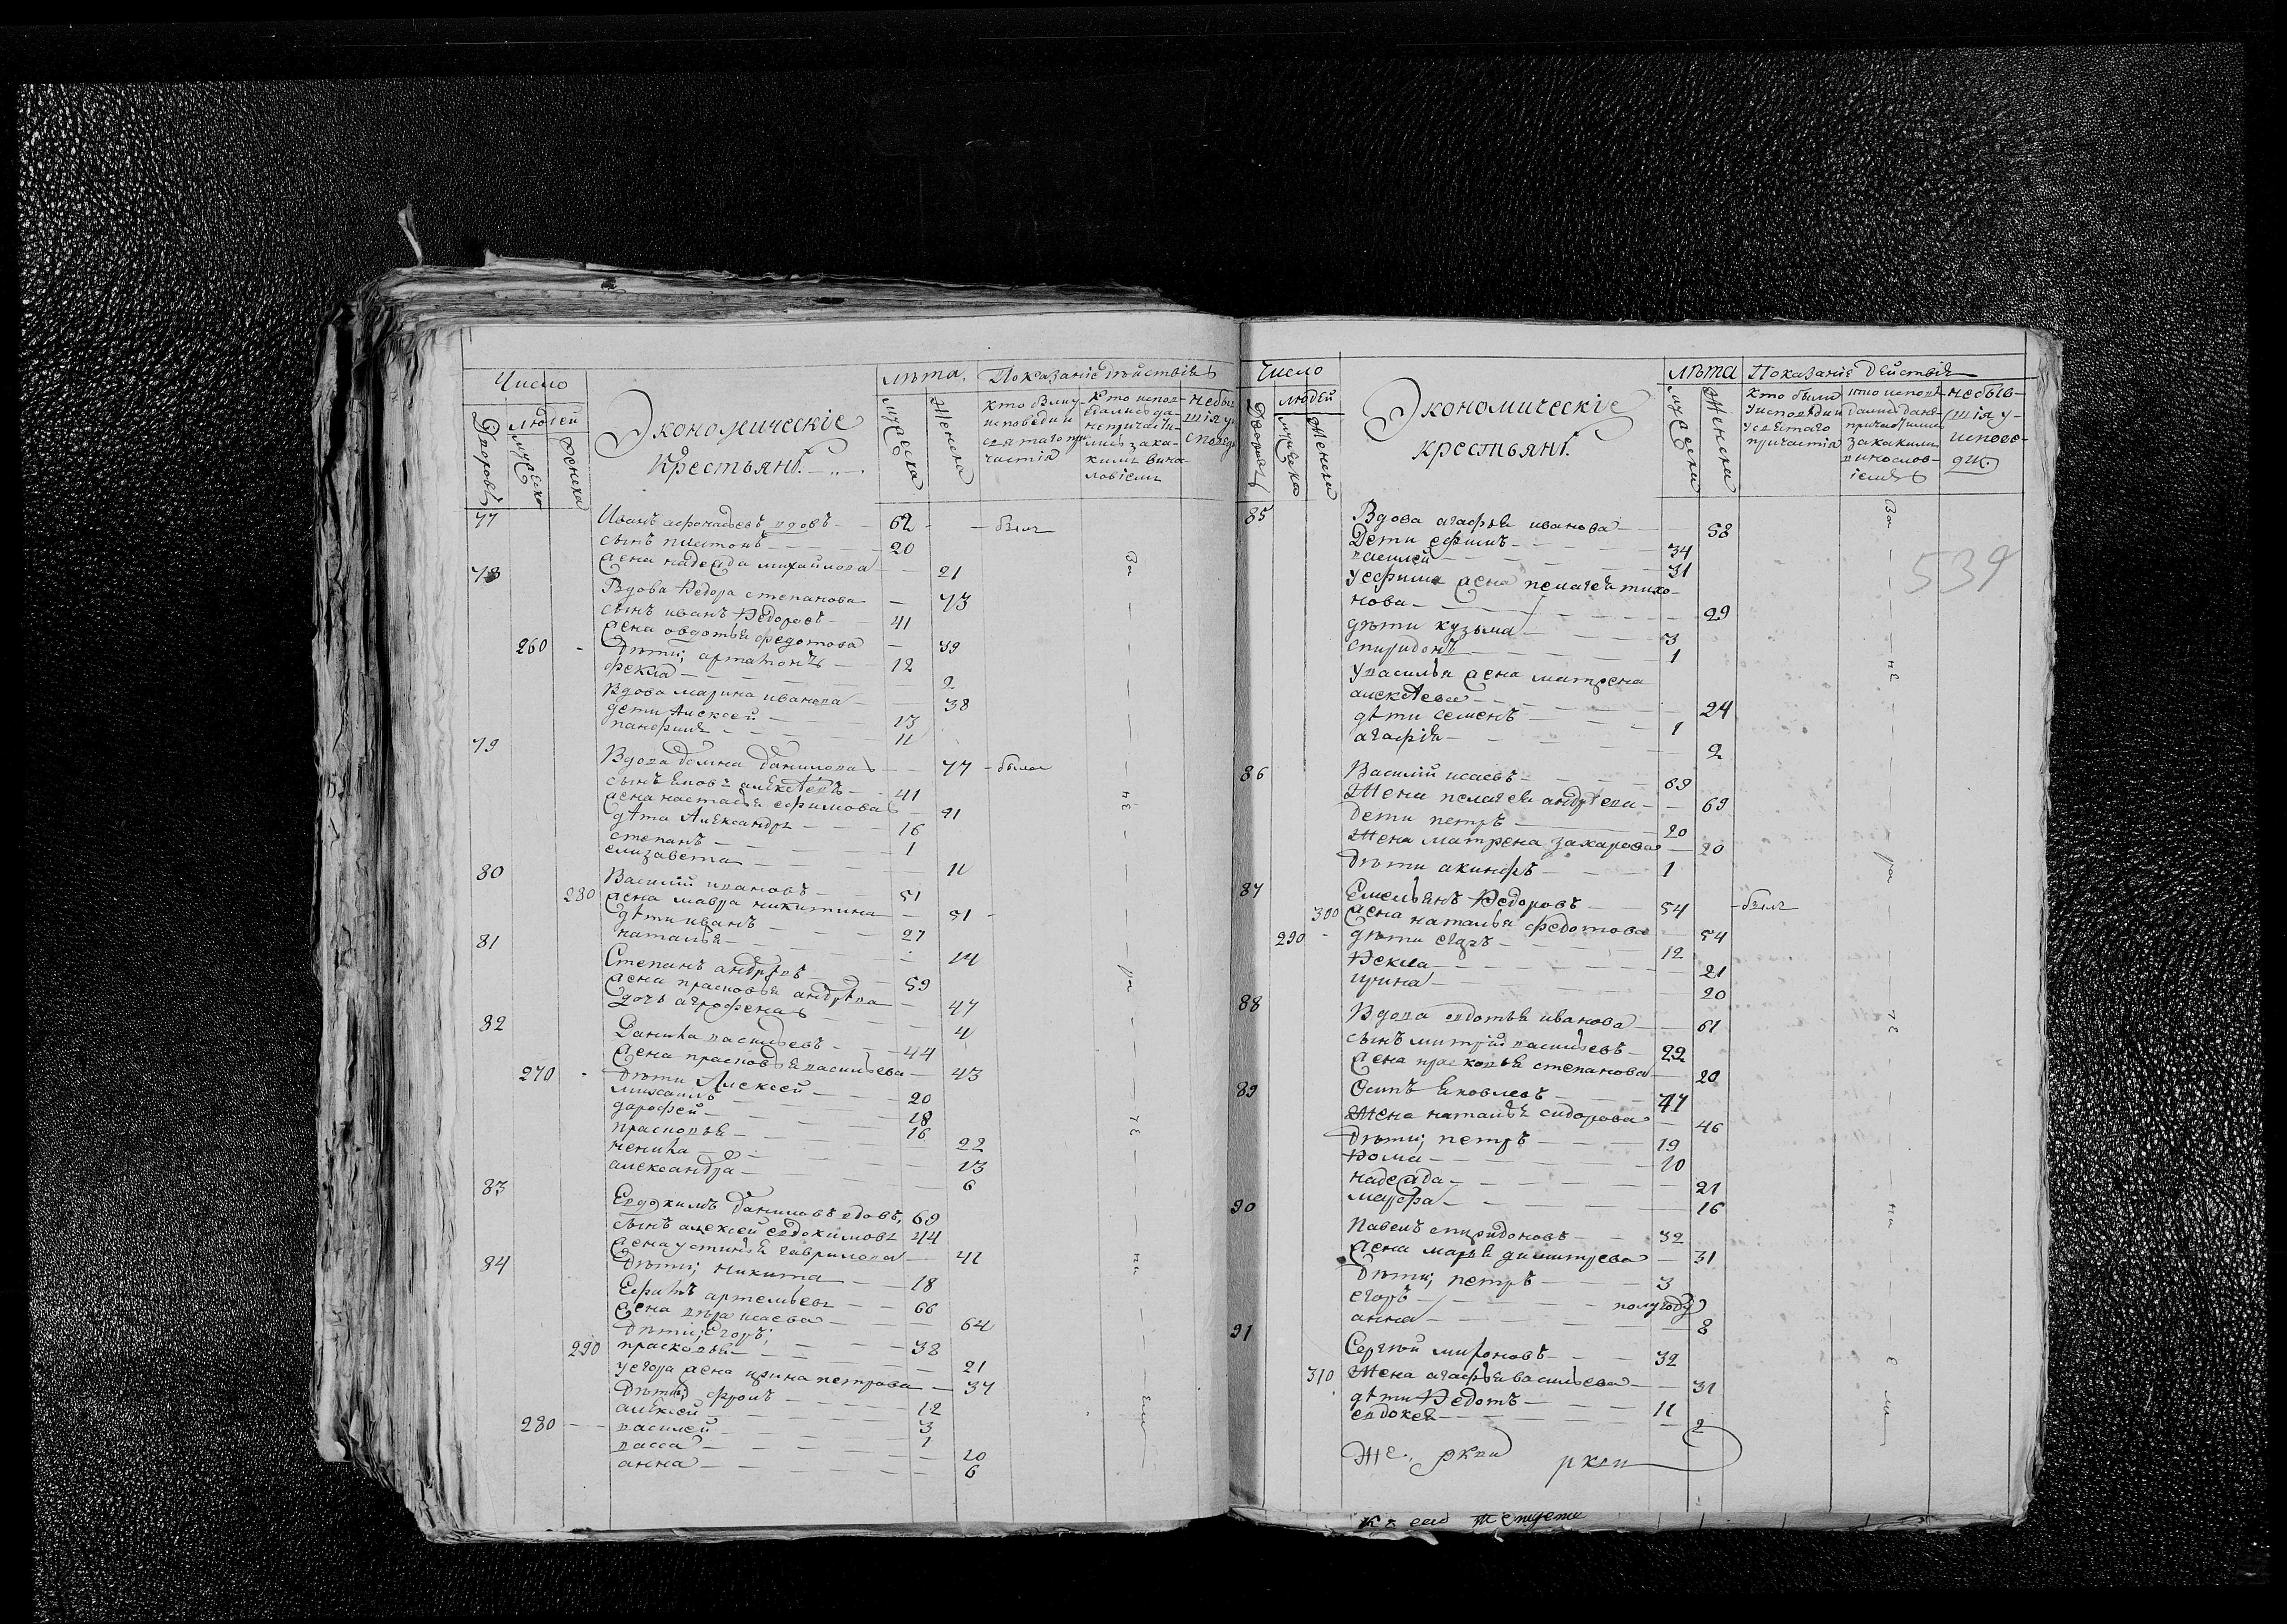 Число
лѣта.
Показанiе дѣйствiя
Дворовъ
людей
мужеска
женска
Экономическiе
крестьянѣ.
мужеска
женска
кто были у
исповеди и
святаго при
частiя
Кто испов-
едались да
непричасти-
лись за ка-
кимъ вино-
ловiемъ
небыв
шiя у
споведи
77 Иванъ афонасьевъ вдовъ 62 былъ
сынъ платонъ 20
жена надежда михайлова 21
78 Вдова Ѳедора степанова 73
сынъ иванъ Ѳедоровъ 41
жена овдотья федотова 39
260 Дѣти; артамонъ 12
фекла 2
Вдова марина иванова 38
дети Алексей 13
панфилъ 11
79 Вдова домна данилова 77 была
сынъ алексѣевъ 41
жена настасья ефимова 21
дѣти Александръ 16
степанъ 1
елизавета 11
80 Василiй ивановъ 51
280 жена мавра никитина 51
дѣти иванъ 27
наталья 14
81 Степанъ андрѣевъ 59
жена прасковья андрѣева 47
дочь агрофена 4
82 Данила васильевъ 44
жена прасковья васильева 43
270 Дѣти Алексей 20
михаилъ 18
дарофей 16
прасковья 22
ненила 13
александра 6
83 Евдокимъ даниловъ вдовъ, 69
сынъ алексей евдокимовъ 44
жена устинья гаврилова 41
Дѣти; никита 18
84 Ефимъ артемьевъ 66
жена исаева 64
Дѣти; Егоръ; 38
290 прасковья 21
У егора жена ирина петрова 37
Дѣти; фролъ 12
алексей 3
280 василей 1
васса 10
анна 6
За
не
ра
че
на
емъ
Число
Дворовъ
людей
мужеска
женска
Экономическiе
крестьянѣ.
лѣта
мужеска
женска
Показанiе действiя
Кто были
у исповѣди и
у святаго
причастiя
кто исповѣ
дались да не
причастились
за какимъ
винослов-
iемъ
небыв-
шiя у
испове-
ди.
539
85 Вдова агафья иванова 58
Дети ефимъ 34
василей 31
У ефима жена пелагея тихо-
нова 29
дѣти кузьма 3
спиридонъ 1
У василья жена матрена
алексѣева 24
дѣти семенъ 1
агафiя 2
86 Василiй исаевъ 69
Жена пелагея андрѣева 69
Дети петръ 20
Жена матрена захарова 20
Дѣти акинфъ 1
87 Емельянъ Ѳедоровъ 54 былъ
300 жена наталья федотова 54
290 дѣти егоръ 12
Ѳекла 21
ирина 20
88 Вдова овдотья иванова 61
сынъ митрiй васильевъ 22
жена прасковья степанова 20
89 Осипъ яковлевъ 47
Жена наталья сидорова 46
Дѣти; петръ 19
Ѳома 10
надежда 21
марфа 16
90 Павелъ спиридоновъ 32
жена марья димитрева 31
Дѣти; петръ 3
егоръ полугоду
анна 8
91 Сергѣй мироновъ 32
310 Жена агафья васильева 31
дѣти Ѳедотъ 11
евдокея 2
За
не
ра
че
на
е
мъ